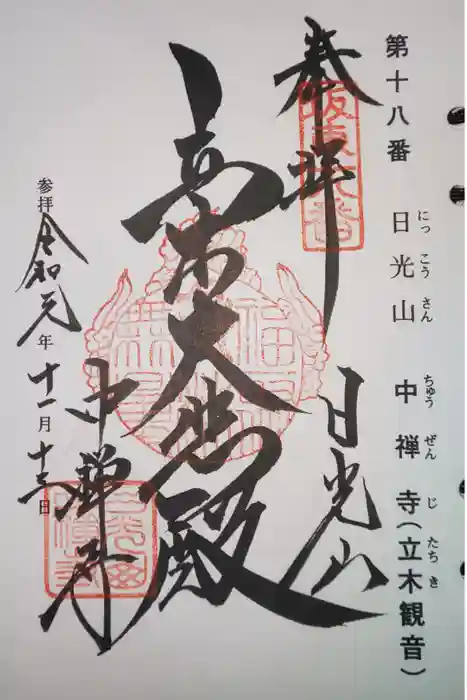 第十八番 日光山 中禅寺(立木観音)
にっこうさん ちゅうぜんじ たちき
奉拝
日光山
立木大悲殿
中禅寺
参拝 令和元年十一月十三日